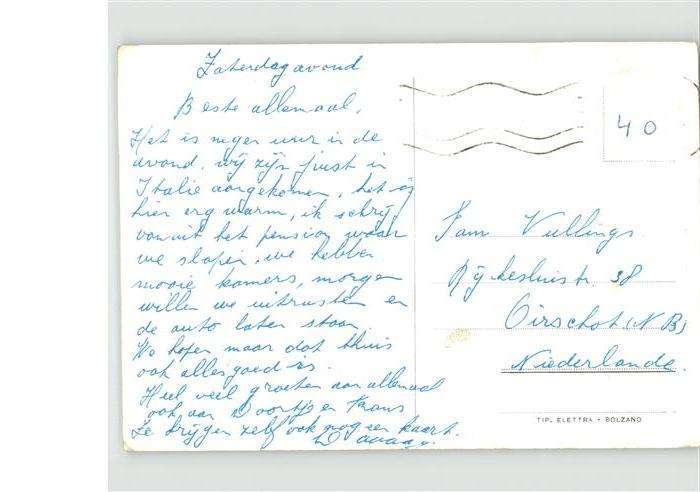 Zaterdagavond
Beste allemaal,
Het is negen uur in de
avond. wij zijn juist in
Italie aangekomen, het is
hier erg warm, ik schrijf
vanuit het pension waar
we slapen, we hebben
mooie kamers, morgen
willen we uitrusten en
de auto laten staan
We hopen maar dat thuis
ook alles goed is.
Heel veel groeten aan allemaal
ook aan Doortje en Frans
Ze krijgen zelf ook nog een kaart.
40
Fam Vullings
Rijkesluistr. 38
Oirschot (N B)
Niederlande.
TIP. ELETTRA - BOLZANO